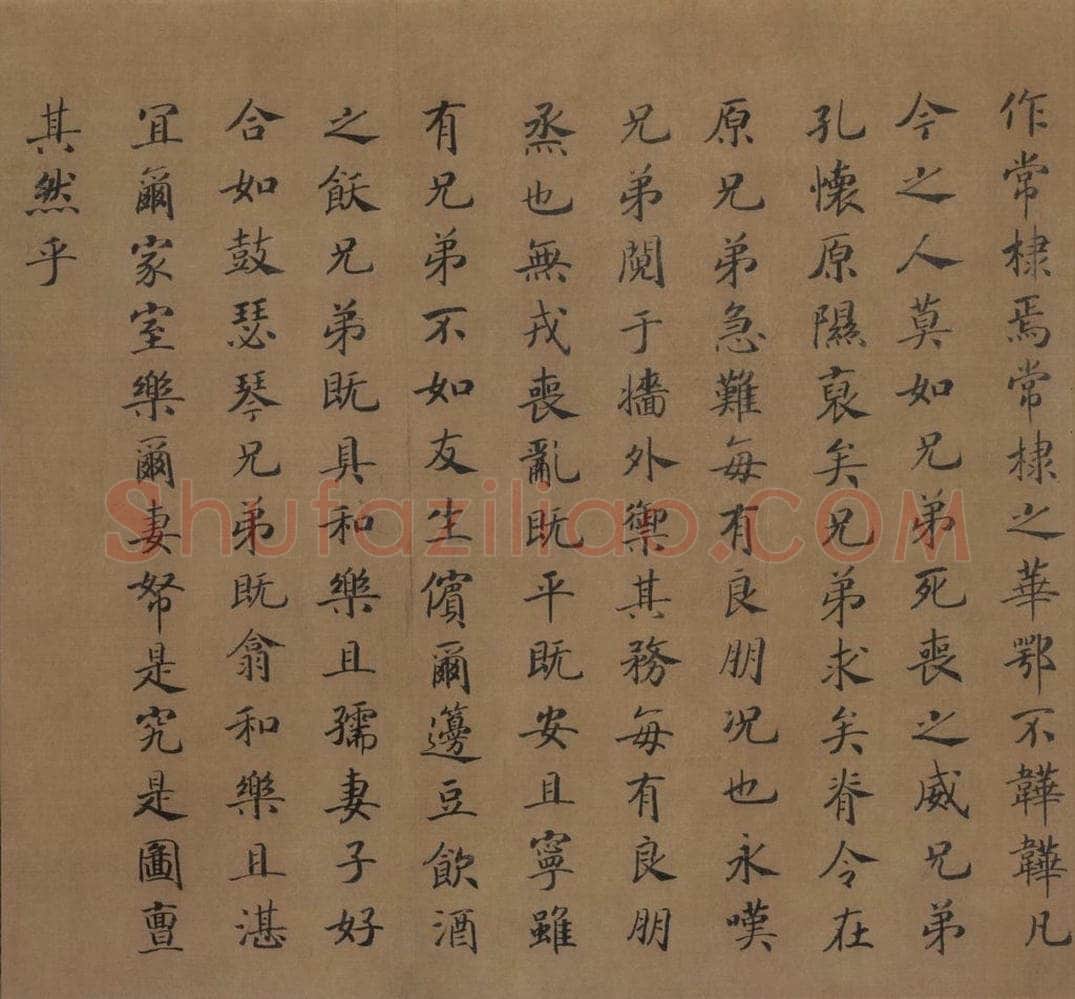 作常棣焉常棣之華鄂不韡韡凡
今之人莫如兄弟死喪之威兄弟
孔懷原隰裒矣兄弟求矣脊令在
原兄弟急難每有良朋况也永嘆
兄弟鬩于牆外禦其務每有良朋
烝也無戎喪亂既平既安且寧雖
有兄弟不如友生儐爾籩豆飲酒
之飫兄弟既具和樂且孺妻子好
合如鼓瑟琴兄弟既翕和樂且湛
宜爾家室樂爾妻帑是究是圖亶
其然乎
Shufaziliao.COM